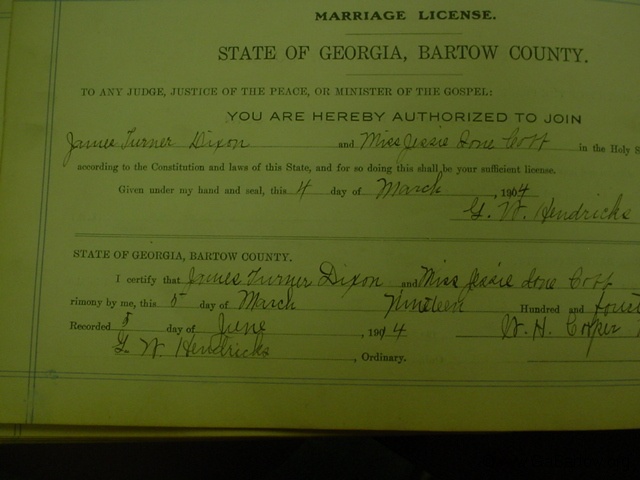 MARRIAGE LICENSE.
STATE OF GEORGIA, BARTOW COUNTY.
TO ANY JUDGE, JUSTICE OF THE PEACE, OR MINISTER OF THE GOSPEL:
YOU ARE HEREBY AUTHORIZED TO JOIN
James Turner Dixon and Miss Jessie Ione Cobb in the Holy S
according to the Constitution and laws of this State, and for so doing this shall be your sufficient license.
Given under my hand and seal, this 4 day of March, 1914
G. W. Hendricks
STATE OF GEORGIA, BARTOW COUNTY.
I certify that James Turner Dixon and Miss Jessie Ione Cobb
rimony by me, this 5 day of March Nineteen Hundred and fourt
Recorded 5 day of June, 1914 W. H. Cooper
G. W. Hendricks, Ordinary.